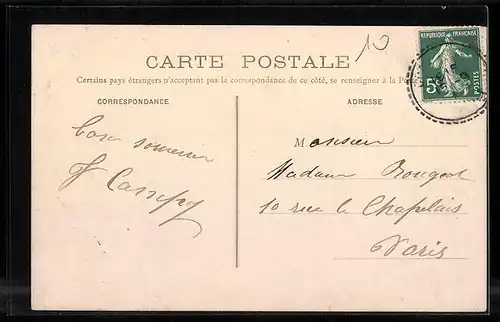 10
REPUBLIQUE FRANÇAISE
5c
POSTES
CARTE POSTALE
Certains pays étrangers n'acceptant pas la correspondance de ce côté, se renseigner à la
CORRESPONDANCE
ADRESSE
Bon souvenir
Monsieur
Madame
10 rue le Chapelais
Paris